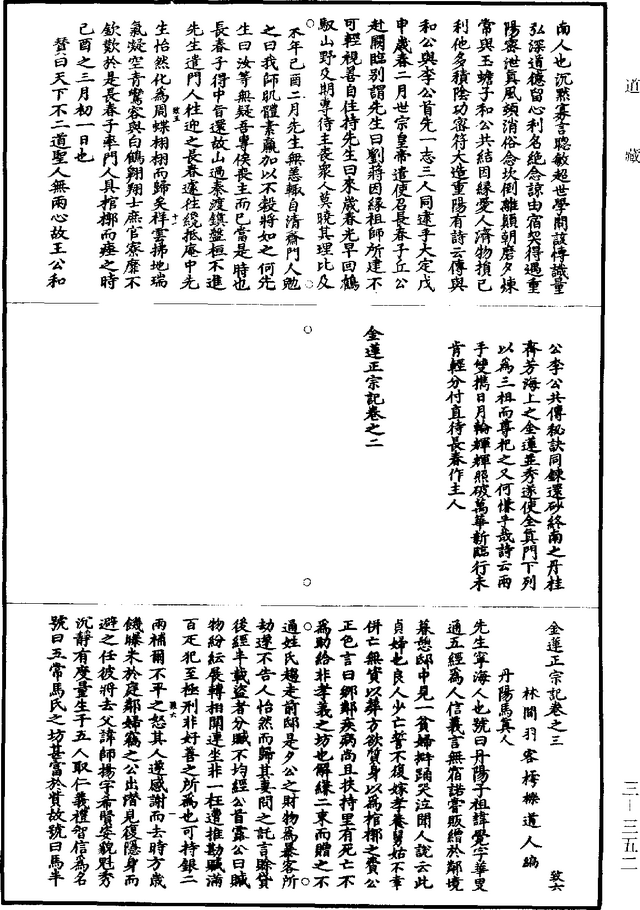 道藏
南人也沉默寡言聰敏超世學問該博識量
弘深道德留心利名絕念諒由宿契得遇重
陽密泄真風頓消俗念坎倒離顛朝磨夕煉
常與玉蟾子和公共結因緣愛人濟物損己
利他多積陰功密符大造重陽有詩云傳與
和公與李公首先一志三人同逮乎大定戊
申歲春二月世宗皇帝遣使召長春子丘公
赴闕臨別謂先生曰劉蔣因緣祖師所建不
可輕視善自住持先生曰來歲春光早回鶴
馭山野交期專侍主喪衆人莫曉其理比及
來年己酉二月先生無恙輒自清齋門人勉
之曰我師肌體素羸加以不穀將如之何先
生曰汝等無疑吾專俟喪主而已當是時也
長春子得中旨還故山過秦渡鎮盤桓不進
先生遣門人往迎之長春遽往纔抵庵中先
生怡然化為周蝶栩栩而歸矣祥雲拂地瑞
氣凝空青鸞容與白鶴翱翔士庶官寮靡不
欽歎於是長春子率門人具棺槨而瘞之時
己酉之三月初一日也
贊曰天下不二道聖人無兩心故王公和
公李公共傳秘訣同鍊還砂終南之丹桂
齊芳海上之金蓮並秀遂使全真門下列
以為三祖而尊祀之又何慊乎哉詩云兩
手雙擕日月輪輝輝照破萬華新臨行未
肯輕分付直待長春作主人
金蓮正宗記卷之二
金蓮正宗記卷之三 致六
林間羽客樗櫟道人編
丹陽馬真人
先生寧海人也號曰丹陽子祖諱覺字華叟
通五經為人信義言無宿諾嘗販繒於鄰境
暮憩邸中見一貧婦擗踊哭泣聞人說云此
貞婦也良人少亡誓不復嫁孝養舅姑不幸
併亡無貲以葬方欲質身以為棺槨之費公
正色言曰鄉鄰疾病尚且扶持里有死亡不
為助給非孝義之坊也解縑二束而贈之不
通姓氏趨走前邸是夕公之財物為暴客所
劫遂不告人怡然而歸其妻問之託言賒貸
後經半載盜者分贓不均經公首露公曰贓
物紛紜展轉相關連坐非一枉遭推勘贓滿
百疋犯至極刑非好善之所為也可持銀二
兩補爾不平之怒其人遂感謝而去時方歲
饑曝米於庭鄰婦竊之公出偕見復隱身而
避之任彼將去父諱師揚字希賢姿貌魁秀
沉靜有度量生子五人取仁義禮智信為名
號曰五常馬氏之坊甚富於貲故號曰馬半
三—三五二